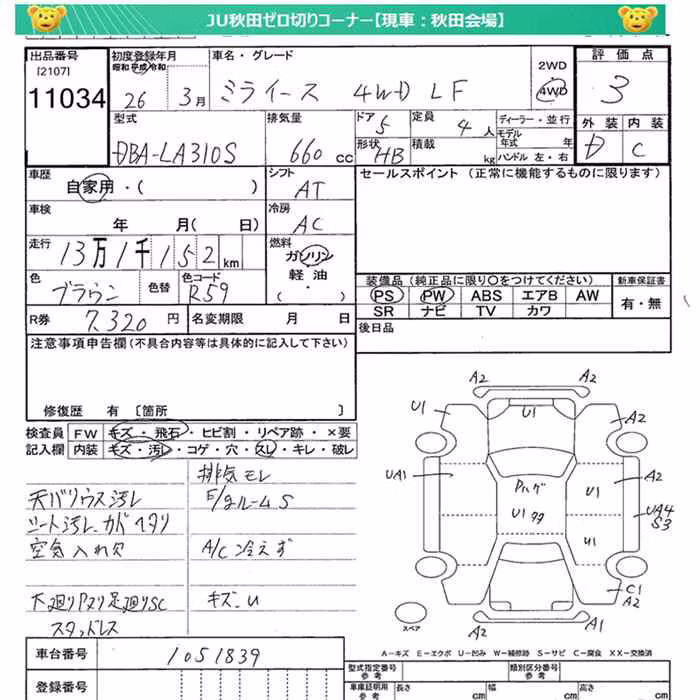 JU秋田ゼロ切りコーナー【現車：秋田会場】
出品番号 初度登録年月 車名・グレード 2WD 評価点
[2107] 昭和 平成 令和
11034 26 3月 ミライース 4WD LF 4WD 3
型式 排気量 ドア 5 定員 4人 ディーラー・並行 外装 内装
モデル年式 年
DBA-LA310S 660cc 形状 HB 積載 kg ハンドル 左・右 D C
車歴 シフト セールスポイント (正常に機能するものに限ります)
自家用・( ) AT
車検 冷房
年 月( 日) AC
走行 燃料
13万1千152km ガソリン
色 色替 色コード 軽油 装備品 (純正品に限り○をつけてください) 新車保証書
ブラウン R59 (・) PS PW ABS エアB AW 有・無
SR ナビ TV カワ
R券 7,320円 名変期限 月 日 後日品
注意事項申告欄(不具合内容等は具体的に記入して下さい)
修復歴 有 [箇所 ]
検査員 FW キズ・飛石・ヒビ割・リペア跡・×要
記入欄 内装 キズ・汚レ・コゲ・穴・スレ・キレ・破レ
排気モレ
天バリウス汚レ F/gルームS
シート汚レ、カドヘタリ
空気入れ欠 A/C冷えず
下廻りPスリ足廻りSC キズ、U
スタッドレス
A2 A2
U1 U1 A2
UA1 A2
Pハゲ U1
U1タタ UA4
S3
U1
C1
A2
スペア A2 A1
A－キズ E－エクボ U－凹み W－補修跡 S－サビ C－腐食 XX－交換済
車台番号 1051839
型式指定番号 参考 類別区分番号 参考
登録番号 車庫証明用 参考 長さ cm 幅 cm 高さ cm